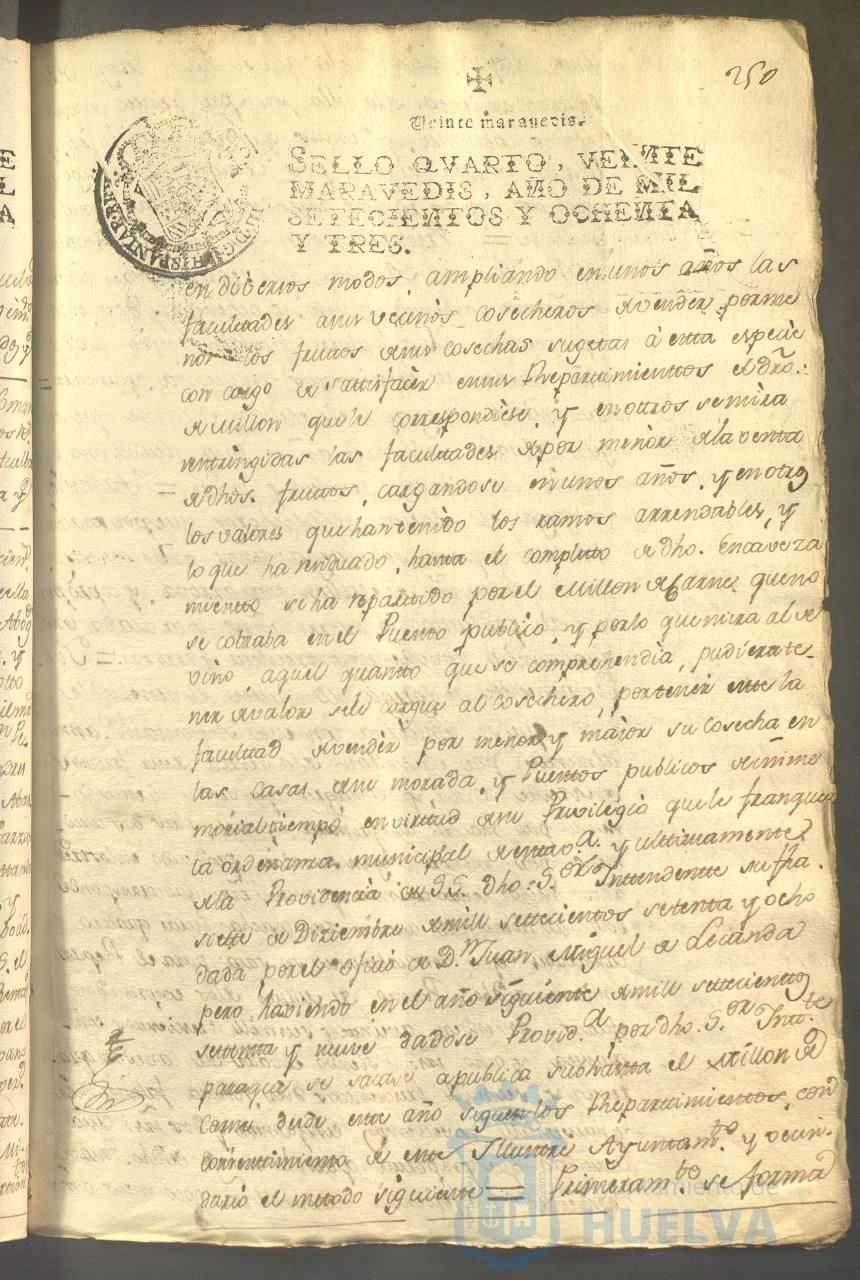 250
Veinte maravedis.
SELLO QVARTO, VEINTE
MARAVEDIS, AÑO DE MIL
SETECIENTOS Y OCHENTA
Y TRES.
HISPANIAR
en diversos modos, ampliando en unos años las
facultades a sus vecinos cosecheros de vender por me
nor los frutos de sus cosechas sugetas á esta especie
con cargo de sattisfacer en sus Repartimienttos el dro.
de Millon que le correspondiese, y en ottros se mira
restringidas las facultades de por menor de la venta
de dhos. fruttos, cargandose en unos años, y en otros
los valores que han tenido los ramos arrendables, y
lo que ha restado, hasta el completo de dho. Encaveza
miento se ha repartido por el Millon de Carnes que no
se cobraba en el Puesto público, y por lo que mira al de
vino aquel quanto que se comprehendia, pudiera te
ner de valor se le cargue al cosechero, por tener este la
facultad de vender por menor y maior su cosecha en
las casas de su morada, y Puestos publicos de inme
morial tiempo en virtud de su Privilegio que le franquea
la ordenanza municipal de esta va. y ulttimamente
de la Providencia de S.S. dho. S.or Inttendentte su fha.
siette de Diziembre de mill settecientos setenta y ocho
dada por el oficio de D.n Juan Miguel de Lecanda
pero haviendo en el año siguiente de mill settecientos
settenta y nueve dadose Provid.a por dho. S.or Int.te
para que se sacase a publica subhasta el Millon de
Carne, desde este año siguen los Repartimientos, con
consentimiento de este Illustre Ayuntam.to y vecin
dario el metodo siguiente = Primeram.te se forma
Ayuntamiento de
HUELVA